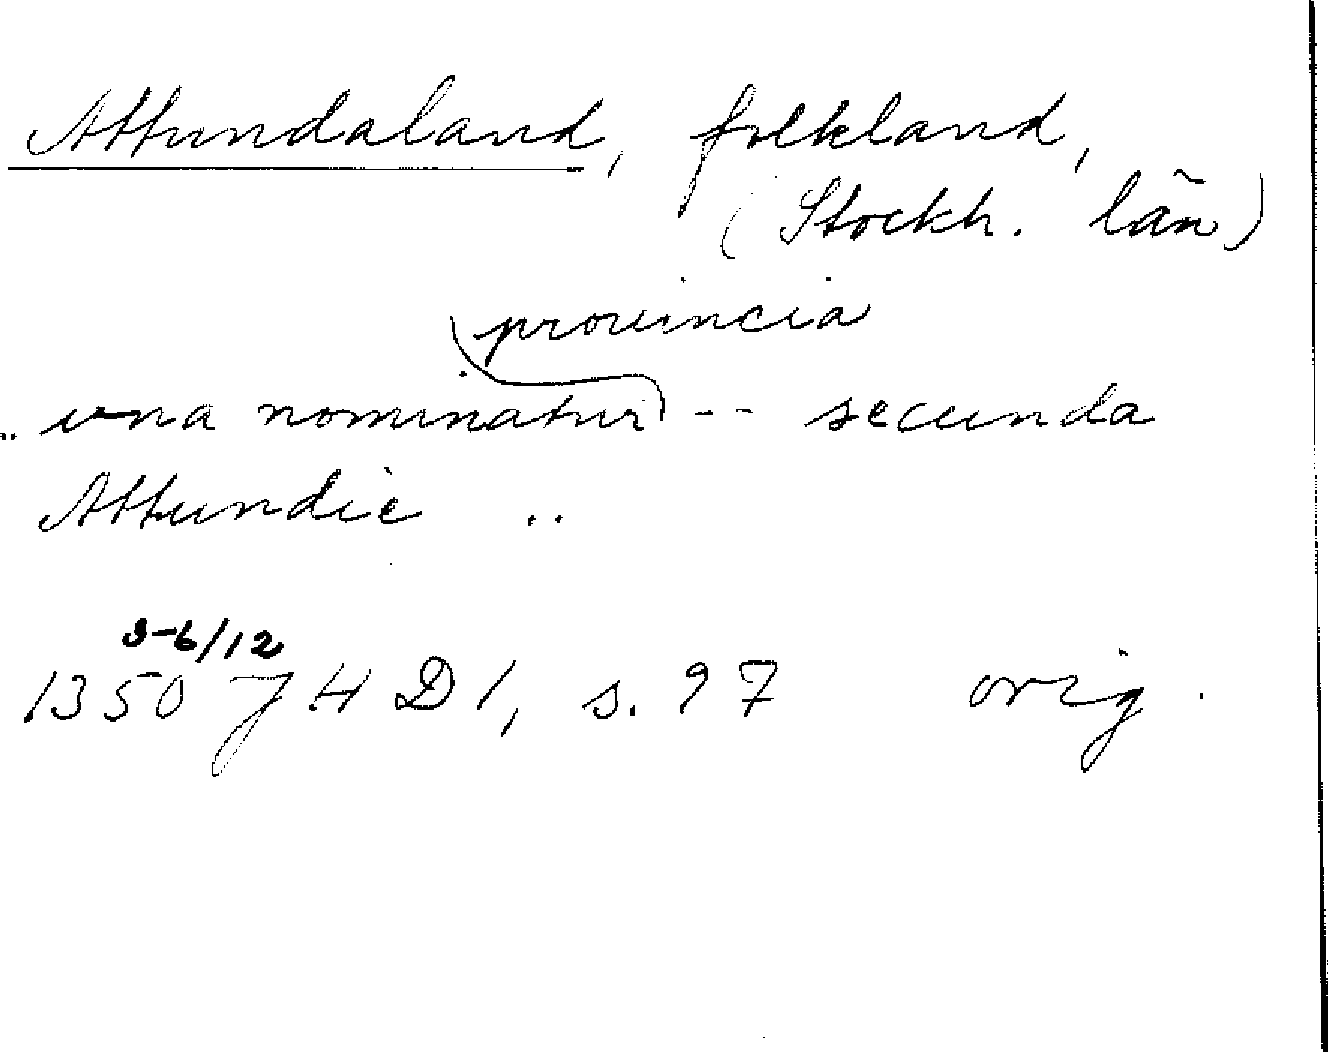 Attundaland, folkland,
(Stockh. län)
provincia
.. una nominatur -- secunda
Attundie ..
3-6/12
1350 JHD 1, s. 97 orig.